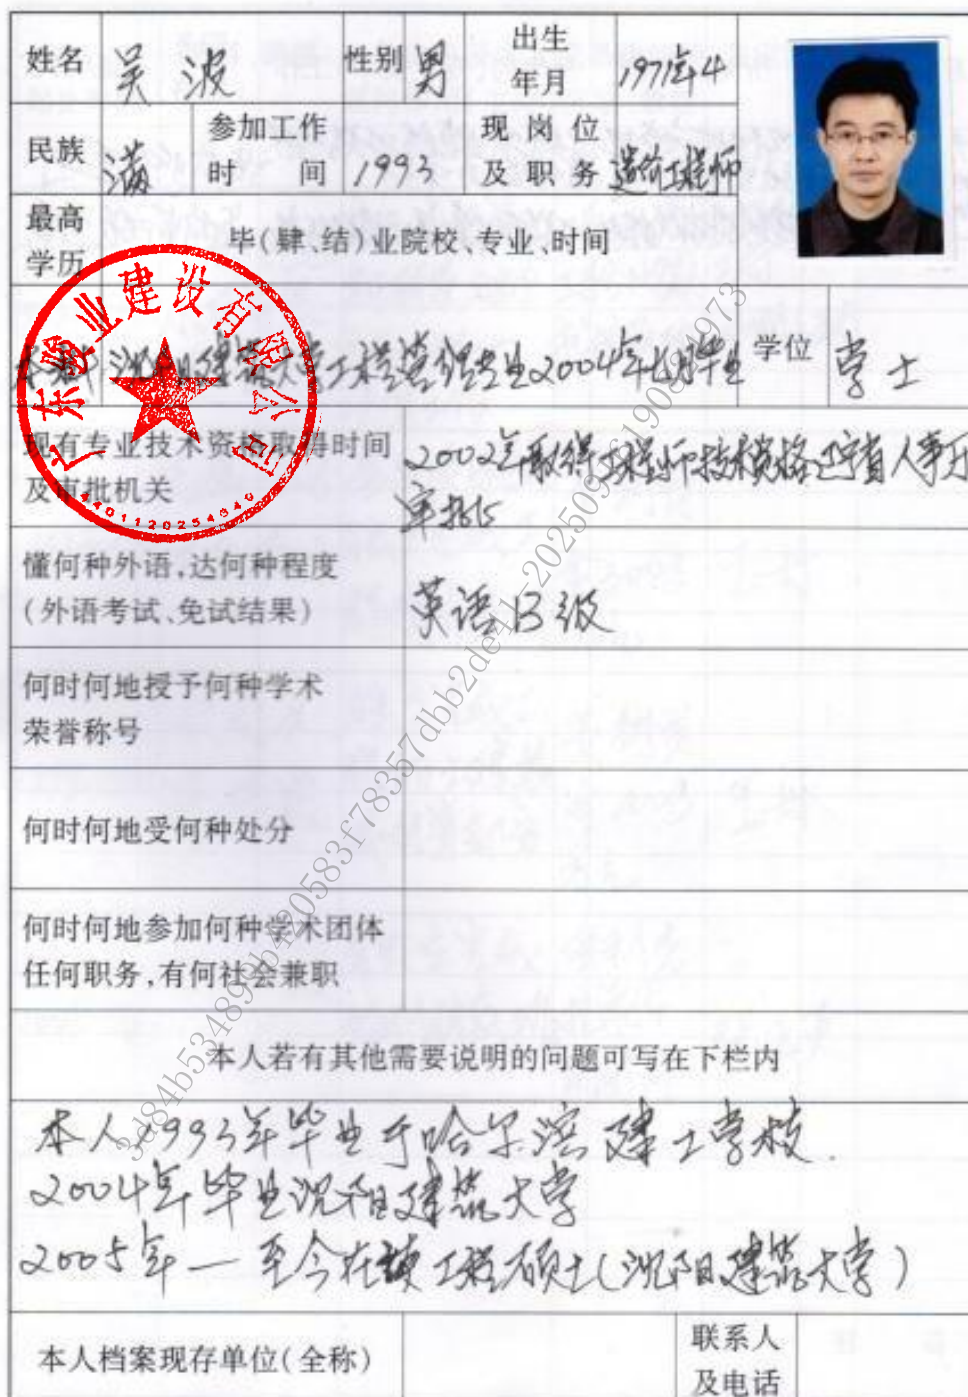 姓名 吴波 性别 男 出生年月 1971年4
民族 满 参加工作时间 1993 现岗位及职务 造价工程师
最高学历 毕(肄、结)业院校、专业、时间
本科 沈阳建筑大学工程管理专业2004年7月毕业 学位 学士
现有专业技术资格取得时间 2002年取得工程师技术资格辽宁省人事厅
及审批机关 审批
懂何种外语,达何种程度
(外语考试、免试结果) 英语B级
何时何地授予何种学术
荣誉称号
何时何地受何种处分
何时何地参加何种学术团体
任何职务,有何社会兼职
本人若有其他需要说明的问题可写在下栏内
本人1993年毕业于哈尔滨建工学校.
2004年毕业沈阳建筑大学
2005年—至今在读工程硕士(沈阳建筑大学)
本人档案现存单位(全称) 联系人
及电话
建设有限公司